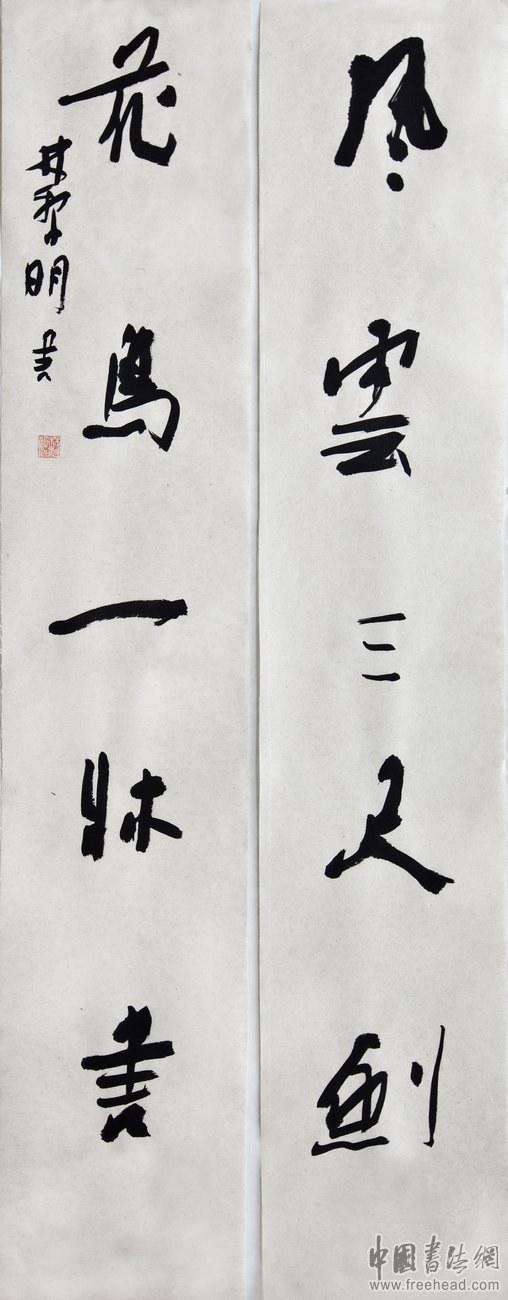 風雲三尺劍
花鳥一牀書
林黎明書
中國書法網
www.freehead.com